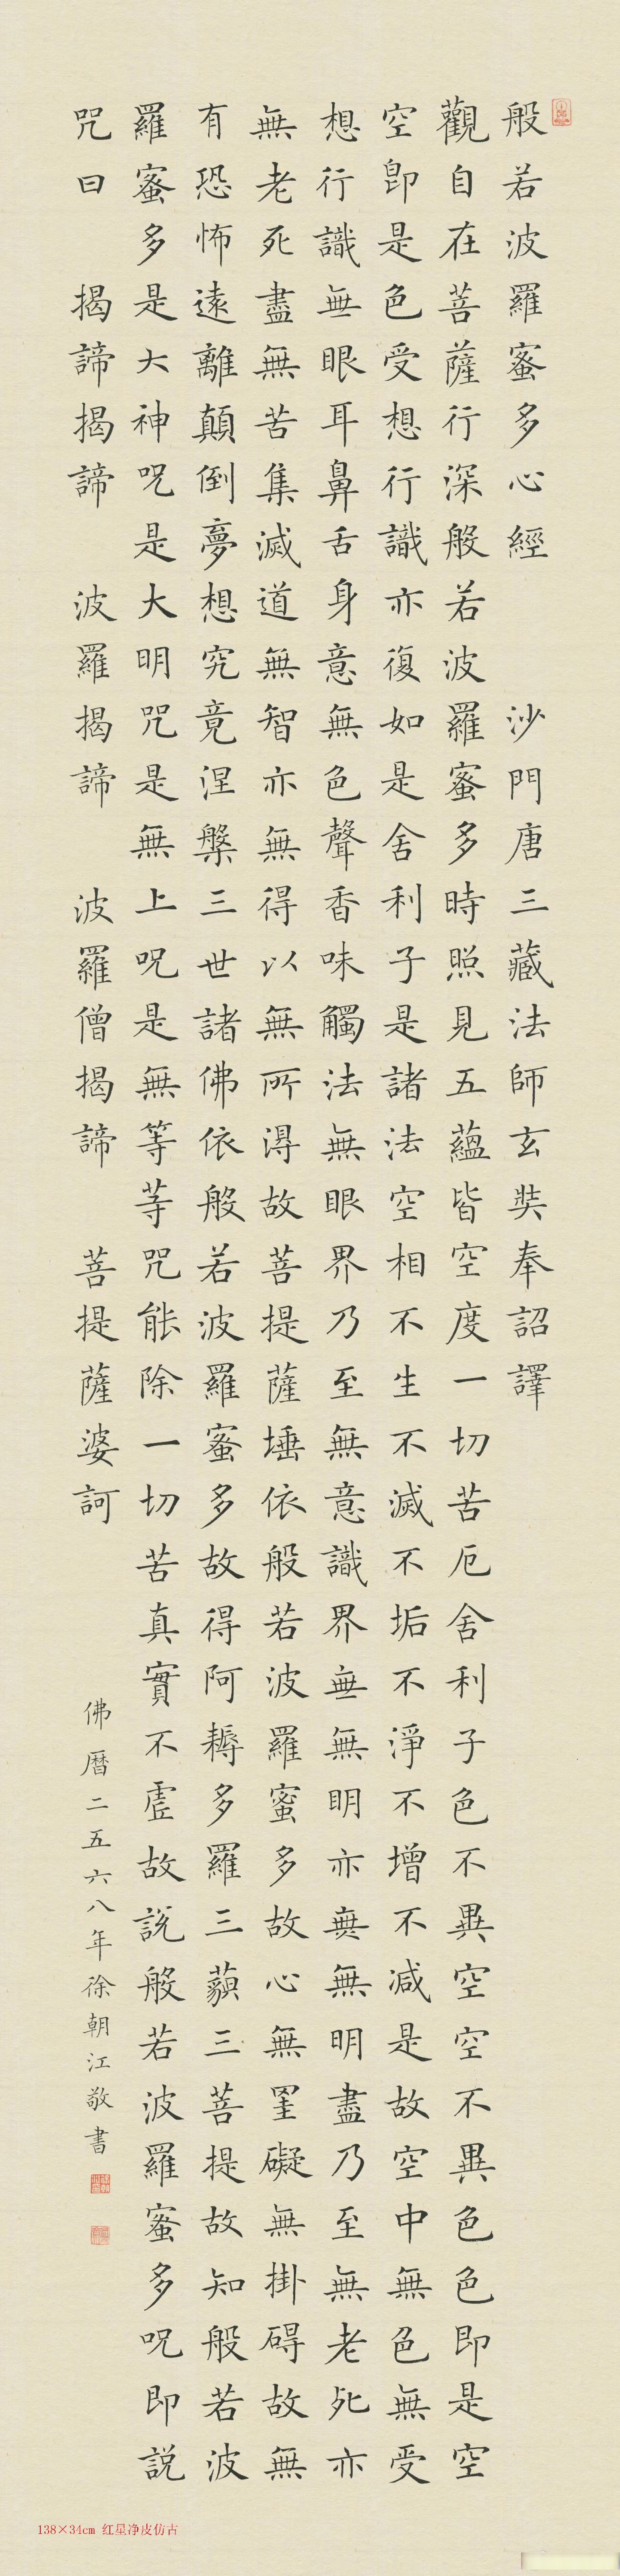 般若波羅蜜多心經 沙門唐三藏法師玄奘奉詔譯
觀自在菩薩行深般若波羅蜜多時照見五蘊皆空度一切苦厄舍利子色不異空空不異色色即是空
空即是色受想行識亦復如是舍利子是諸法空相不生不滅不垢不淨不增不減是故空中無色無受
想行識無眼耳鼻舌身意無色聲香味觸法無眼界乃至無意識界無無明亦無無明盡乃至無老死亦
無老死盡無苦集滅道無智亦無得以無所得故菩提薩埵依般若波羅蜜多故心無罣礙無掛碍故無
有恐怖遠離顛倒夢想究竟涅槃三世諸佛依般若波羅蜜多故得阿耨多羅三藐三菩提故知般若波
羅蜜多是大神呪是大明咒是無上呪是無等等咒能除一切苦真實不虛故說般若波羅蜜多呪即説
咒曰 揭諦揭諦 波羅揭諦 波羅僧揭諦 菩提薩婆訶
佛曆二五六八年徐朝江敬書
138×34cm 红星净皮仿古